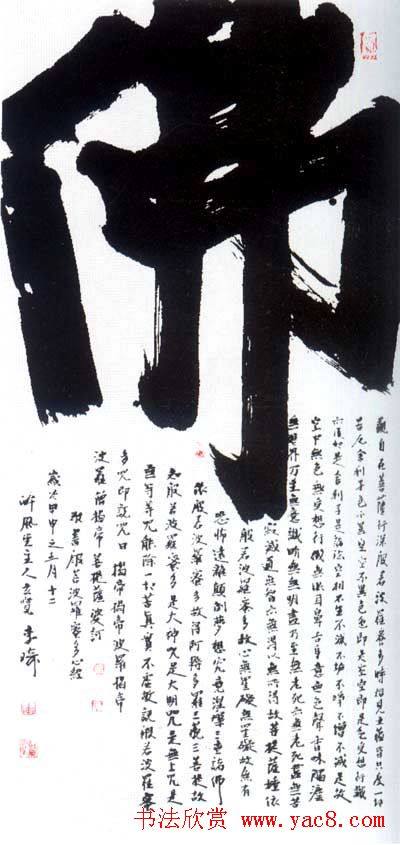 佛
觀自在菩薩行深般若波羅蜜多時照見五蘊皆空度一切
苦厄舍利子色不異空空不異色色即是空空即是色受想行識
亦復如是舍利子是諸法空相不生不滅不垢不淨不增不減是故
空中無色無受想行識無眼耳鼻舌身意無色聲香味觸法
無眼界乃至無意識界無無明亦無無明盡乃至無老死亦無老死盡無苦
寂滅道無智亦無得以無所得故菩提薩埵依
般若波羅蜜多故心無罣礙無罣礙故無有
恐怖遠離顛倒夢想究竟涅槃三世諸佛
依般若波羅蜜多故得阿耨多羅三藐三菩提故
知般若波羅蜜多是大神咒是大明咒是無上咒是
無等等咒能除一切苦真實不虛故說般若波羅蜜
多咒即說咒曰 揭帝 揭帝 波羅揭帝
波羅僧揭帝 菩提薩婆訶
敬書般若波羅蜜多心經
歲次甲申之五月十二
風堂主人 李
书法欣赏 www.yac8.com